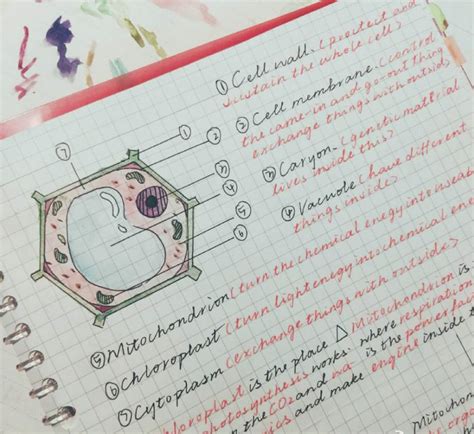 ① Cell wall. (protect and
sustain the whole cell)
② Cell membrane. (control
the came-in and go-out thing
exchange things with outside)
③ Caryon. (genetic material
lives inside this)
④ Vacuole (have different
things inside)
⑤ Mitochondrion (turn the chemical enegy into useab
⑥ Chloroplast (turn light enegy into chemical ene
⑦ Cytoplasm (exchange things with outside)
loroplast is the place △ Mitochondrion is
photosynthesis works: where respiration
the CO2 and is the power
and make engine inside t
⑦
①
②
③
④
⑤
⑥